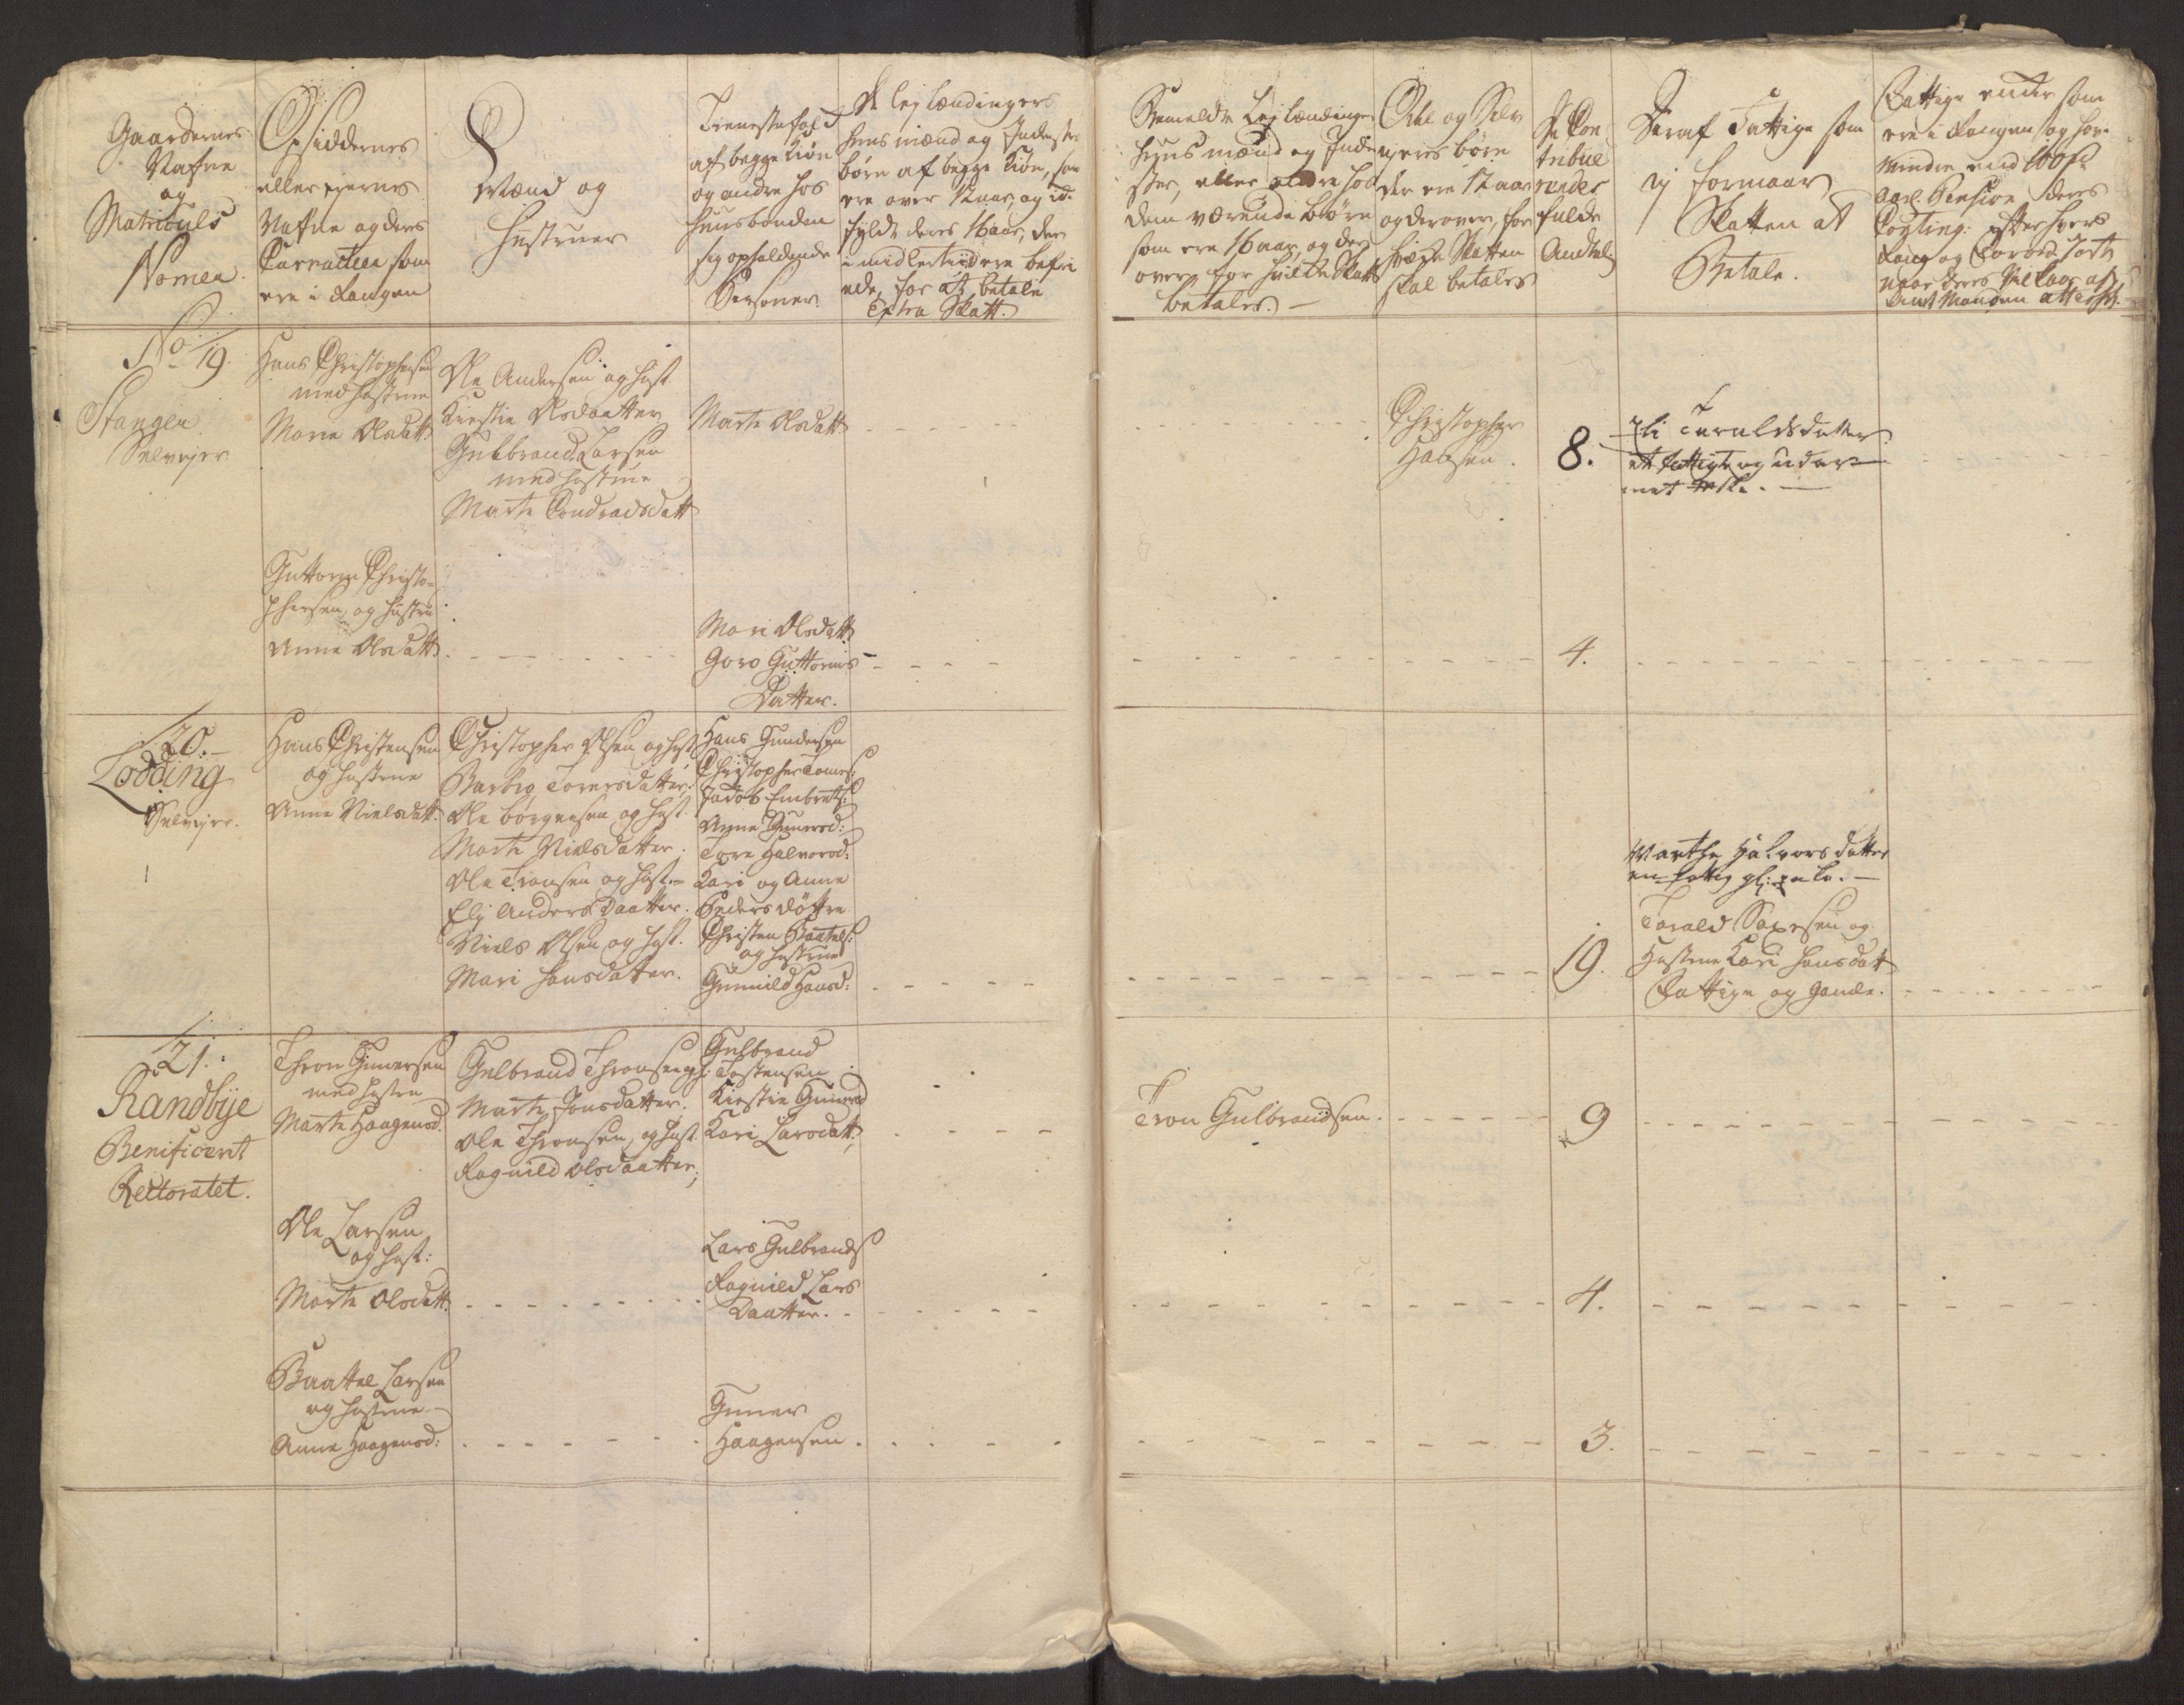 Gaardernes
Nafne
og
Matriculs
Nomen.
Opsiddernes
eller ejernes
Nafne og deres
som
ere i Rangen
Mænd og
Hustruer
Tienestefolk
af begge Kiøn
og andre hos
Huusbonden
sig opholdende
Persohner.
lejlændingers
Huusmænd og Inderster
børn af begge Kiøn, som
ere over 12 aar, og ej
fyldt deres 16 aar, der
imidlertiid ere befri
ede, for at betale
Extra Skatt.
Bemeldte Lejlændinge
Huusmænd og Inder
ster, eller andre hos
dem værende børn
som ere 16 aar og der
over, for hvilke Skatt
betales. –
Odel og Selv
ejeres børn
der ere 12 aar
og derover, for
hvilke Skatten
skal betales
De Con
tribue
rendes
fulde
Andtal
Heraf Fattige som
ej formaar
Skatten at
Betale.
Fattige Enker som
ere i Rangen og har
mindre end 100 rd
aarl. Pension deres
efter hver
Rang og
No 19.
Stangen
Selvejer
Hans Christophersen
med Hustrue
Marie Olsdatt:
Ole Andersen og Hust.
Kirstie Olsdaatter
Gulbrand Larsen
med Hustrue
Marte Condradsdatt
Marte Olsdatt
Christopher
Hansen.
8.
Eli Taraldsdatter
et fattigt og
Guttorm Christo-
phersen og Hustru
Anne Olsdatt:
Mari Olsdatt
Goro Guttorms
Datter.
4.
20.
Lodding
Selvejer.
Hans Christensen
og Hustrue
Anne Nielsdatt:
Christopher Olsen og Hust
Olle Børgersen og Hust.
Marte Nielsdatter.
Ole Tronsen og Hust.
Elj Anders Daatter.
Niels Olsen og Hust.
Mari Hansdatter.
Hans Gundersen
Christopher
Jacob Embrets:
Anne Gunersd:
Tore Halvorsd:
Kari og Anne
Peders døttre
Christen Baatels:
og Hustrue
Gunnild Hansd:
19.
Marthe Halvors datter
en fattig
Torald
Hustrue Kari Hansdatt
Fattige og Gamle.
21.
Randbye
Benificerit
Rectoratet.
Thron Gunersen
med Hustrue
Marte Haagensd.
Gulbrand Thronsen og H:
Marte Jonsdatter.
Ole Thronsen, og Hust.
Ragnild Olsdaatter,
Gulbrand
Tostensen
Kirstie Gunersd
Kari Larsdatt:
Tron Gulbrandsen.
9
Ole Larsen
og Hust:
Marte Olsdatt:
Lars Gulbrands
Ragnild Lars
Daatter.
4.
Baattel Larsen
og Hustrue
Anne Haagensd:
Guner
Haagensen.
3.